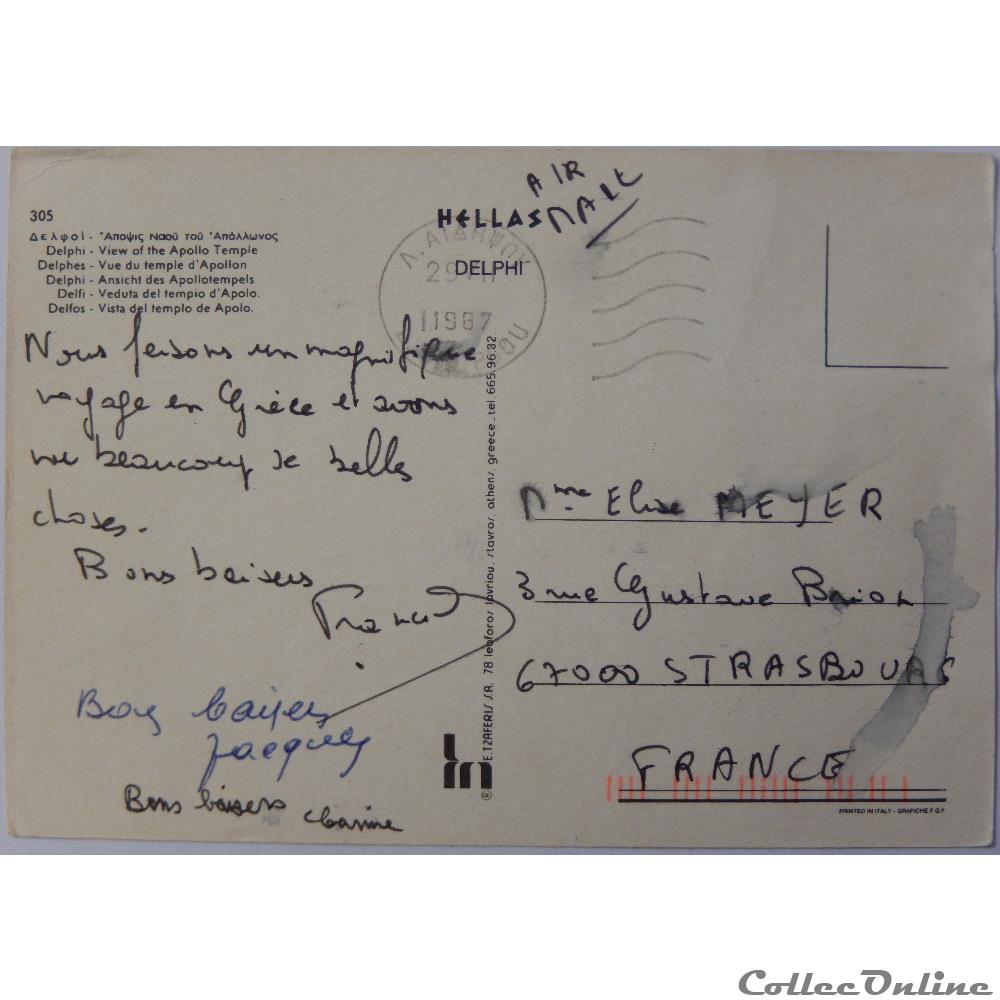 305
Δελφοί - Ἄποψις Ναοῦ τοῦ Ἀπόλλωνος
Delphi - View of the Apollo Temple
Delphes - Vue du temple d'Apollon
Delphi - Ansicht des Apollotempels
Delfi - Veduta del tempio d'Apolo.
Delfos - Vista del templo de Apolo.
HELLAS
DELPHI
AIR
MAIL
Λ. ΑΙΔΗΨΟΥ
29 VII
1987
Nous faisons un magnifique
voyage en Grèce et avons
vu beaucoup de belles
choses.
Bons baisers
Bons baisers
Jacques
Bons baisers
E. TZAFERIS S.A. 78 leoforos lavriou. stavros. athens. greece. tel 665.96.82.
®
Mme Elise MEYER
3 rue Gustave Brion
67000 STRASBOURG
FRANCE
PRINTED IN ITALY - GRAFICHE F.G.F.
CollecOnline